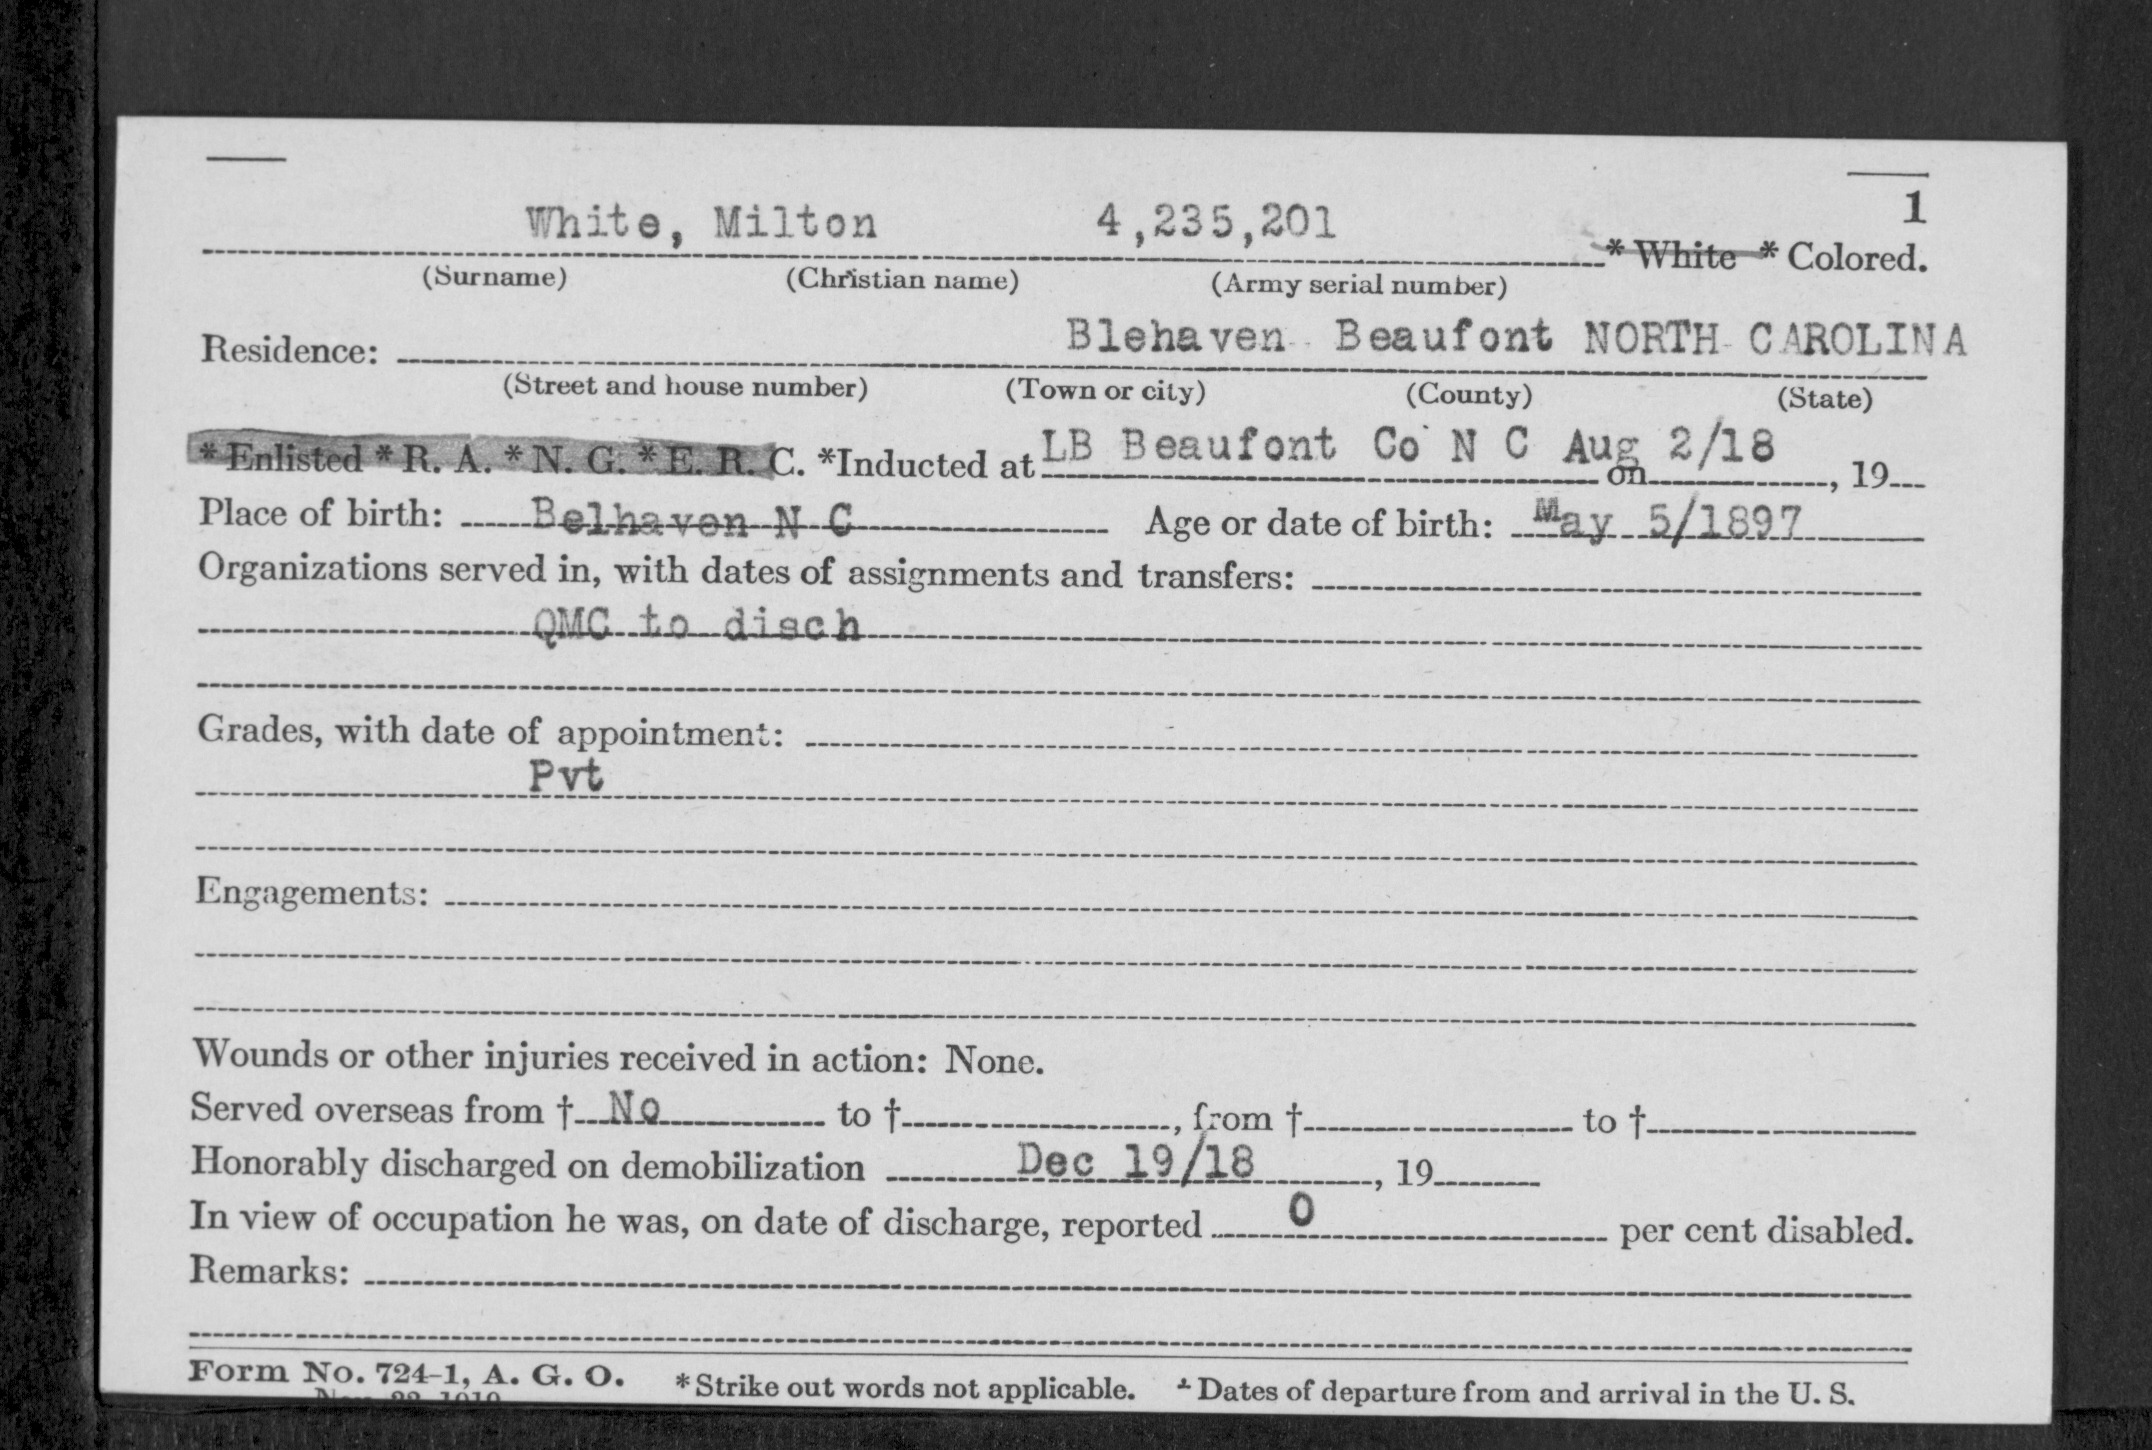 1
White, Milton 4,235,201 * White * Colored.
(Surname) (Christian name) (Army serial number)
Residence: Blehaven Beaufont NORTH CAROLINA
(Street and house number) (Town or city) (County) (State)
*Enlisted *R. A. *N. G. *E. R. C. *Inducted at LB Beaufont Co N C on Aug 2/18, 19
Place of birth: Belhaven N C Age or date of birth: May 5/1897
Organizations served in, with dates of assignments and transfers:
QMC to disch
Grades, with date of appointment:
Pvt
Engagements:
Wounds or other injuries received in action: None.
Served overseas from † No to †, from † to †
Honorably discharged on demobilization Dec 19/18, 19
In view of occupation he was, on date of discharge, reported 0 per cent disabled.
Remarks:
Form No. 724-1, A. G. O. *Strike out words not applicable. † Dates of departure from and arrival in the U. S.